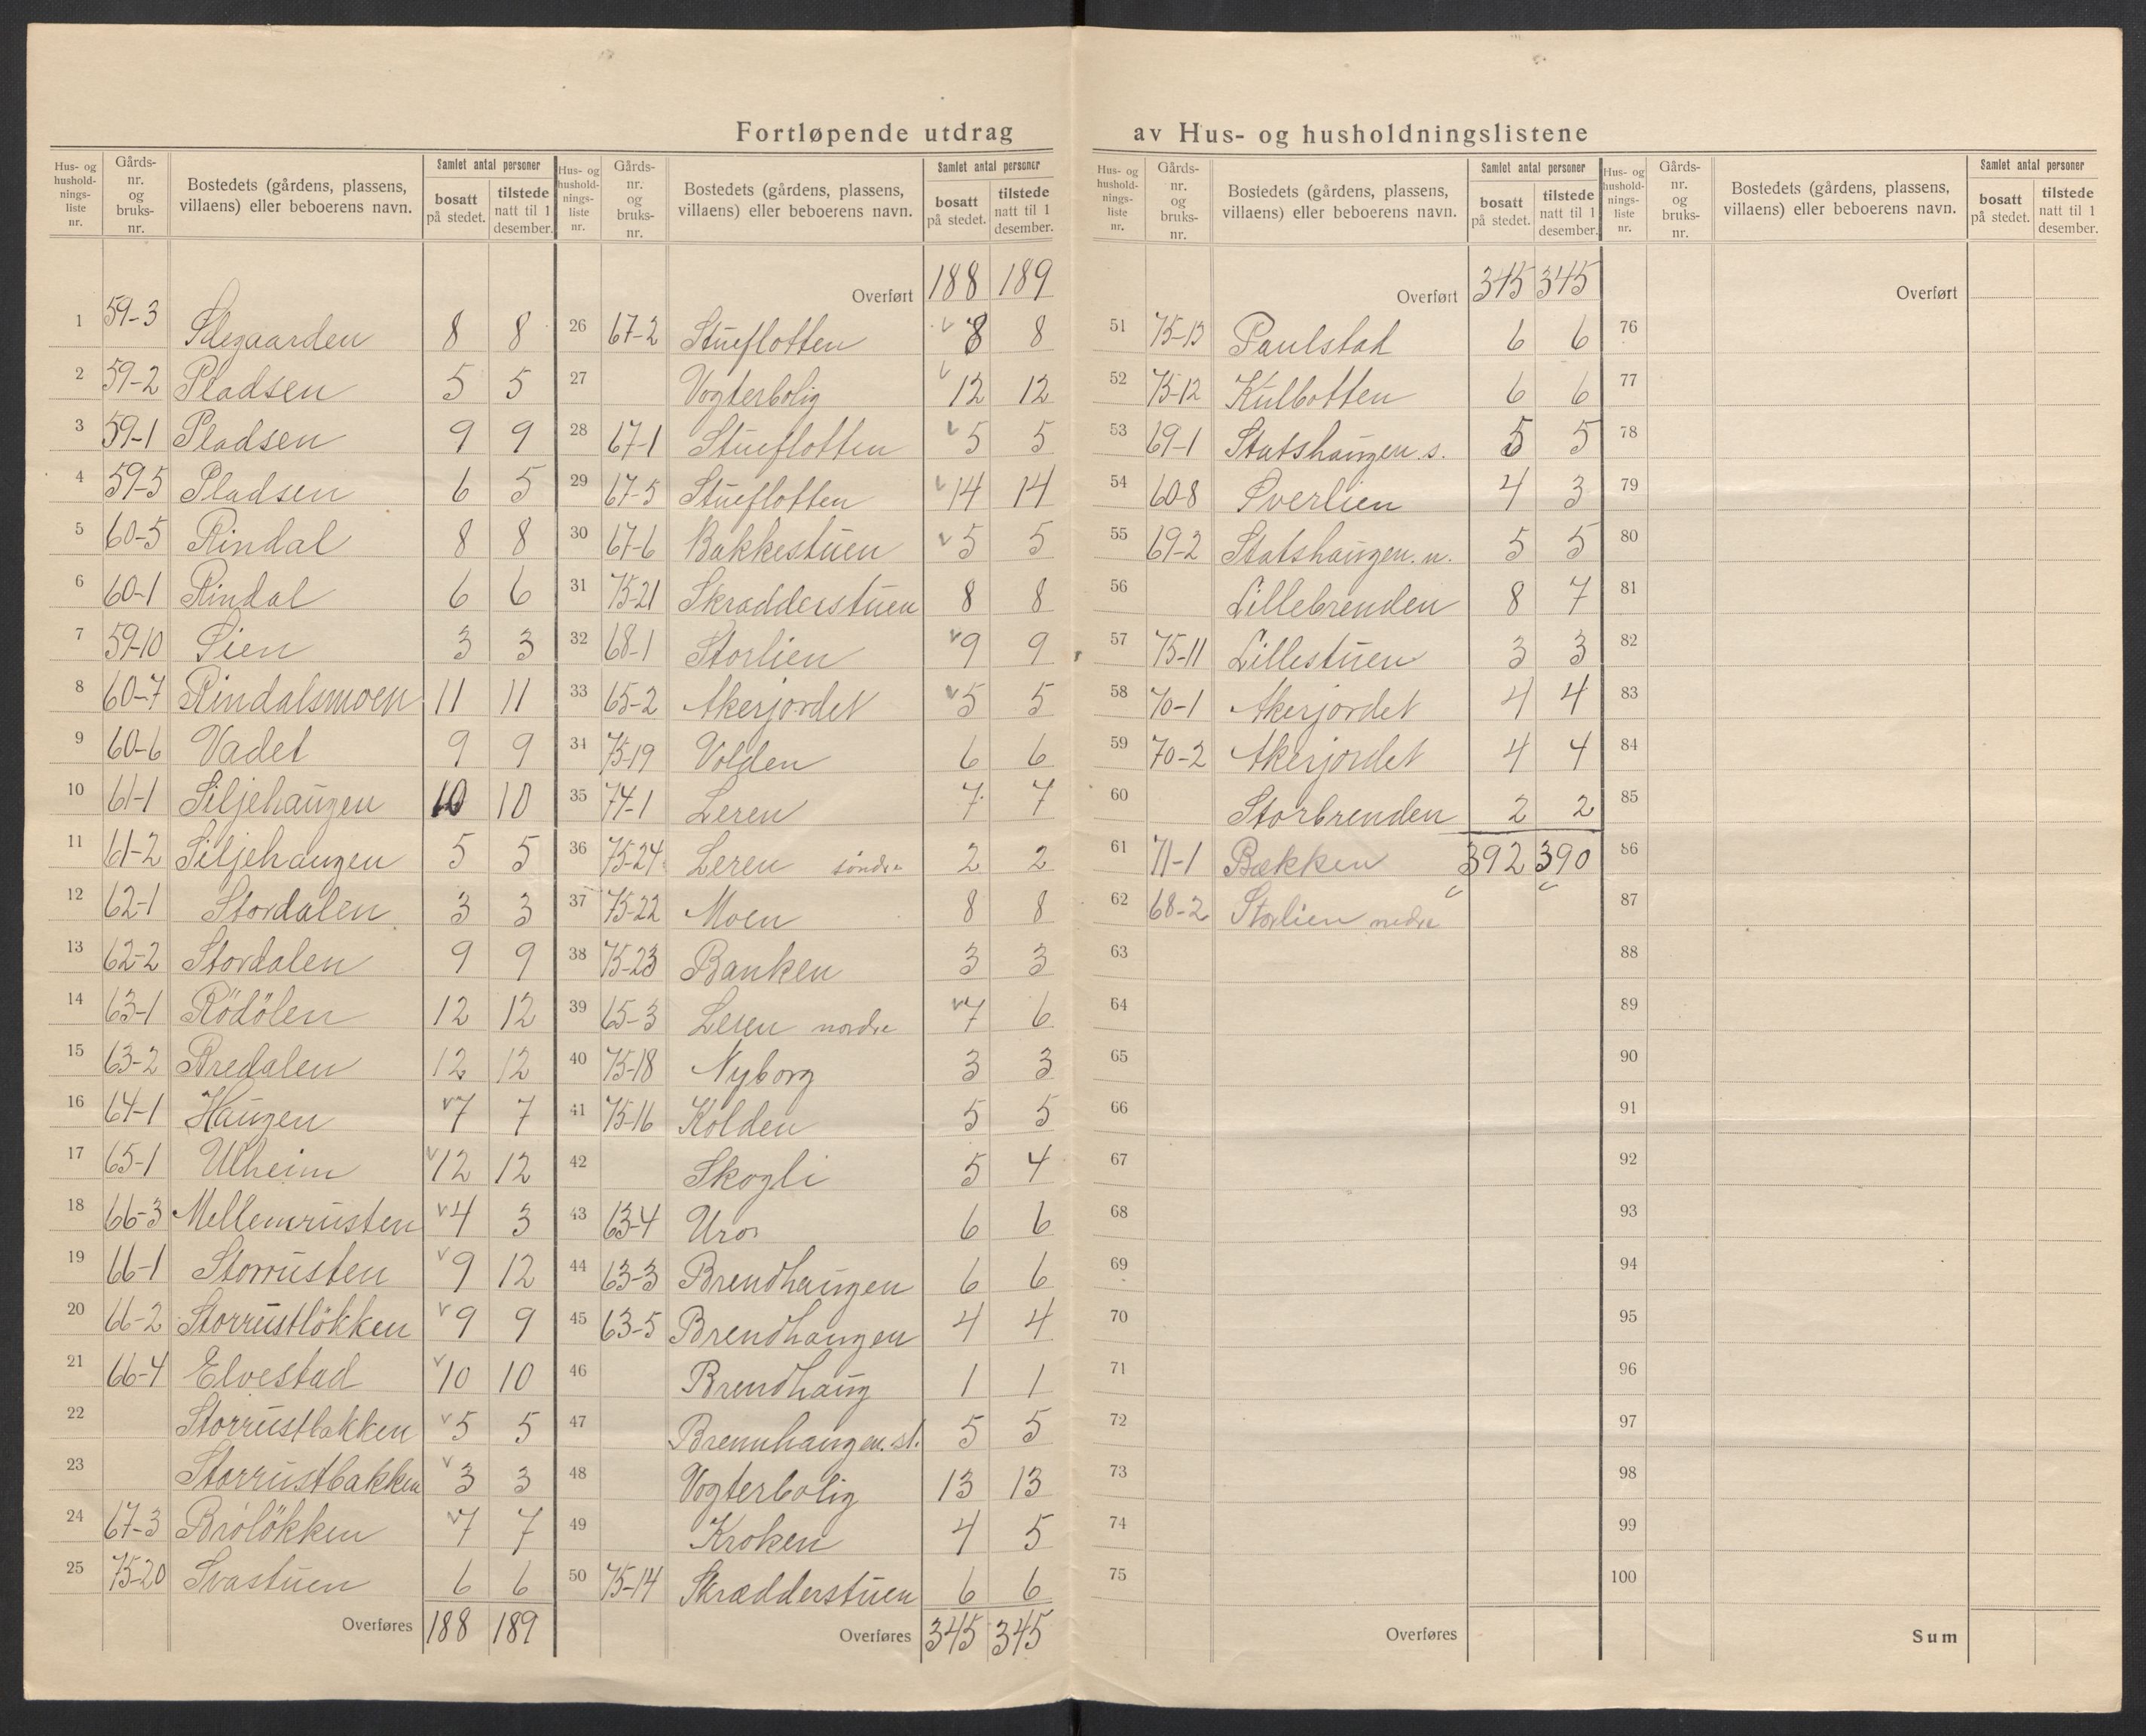 Fortløpende utdrag av Hus- og husholdningslistene
Hus- og hushold-nings-liste nr. Gårds-nr. og bruks-nr. Bostedets (gårdens, plassens, villaens) eller beboerens navn. Samlet antal personer bosatt på stedet. tilstede natt til 1 desember.
1 59-3 8 8
2 59-2 Pladsen 5 5
3 59-1 Pladsen 9 9
4 59-5 Pladsen 6 5
5 60-5 Rindal 8 8
6 60-1 Rindal 6 6
7 59-10 Lien 3 3
8 60-7 Rindalsmoen 11 11
9 60-6 Vadet 9 9
10 61-1 Siljehaugen 10 10
11 61-2 Siljehaugen 5 5
12 62-1 Stordalen 3 3
13 62-2 Stordalen 9 9
14 63-1 Rödölen 12 12
15 63-2 Bredalen 12 12
16 64-1 Haugen v 7 7
17 65-1 Ulheim v 12 12
18 66-3 Mellemrusten v 4 3
19 66-1 Storrusten v 9 12
20 66-2 Storrustlökken v 9 9
21 66-4 Elvestad v 10 10
22 Storrustbakken v 5 5
23 Storrustbakken v 3 3
24 67-3 Brölökken v 7 7
25 75-20 Svastuen 6 6
Overføres 188 189
Hus- og hushold-nings-liste nr. Gårds-nr. og bruks-nr. Bostedets (gårdens, plassens, villaens) eller beboerens navn. Samlet antal personer bosatt på stedet. tilstede natt til 1 desember.
Overført 188 189
26 67-2 Stueflotten v 8 8
27 Vogterbolig v 12 12
28 67-1 Stueflotten v 5 5
29 67-5 Stueflotten v 14 14
30 67-6 Bakkestuen v 5 5
31 75-21 Skradderstuen 8 8
32 68-1 Storlien v 9 9
33 65-2 Akerjordet v 5 5
34 75-19 Volden 6 6
35 74-1 Leren 7 7
36 75-24 Leren söndre 2 2
37 75-22 Moen 8 8
38 75-23 Banken 3 3
39 65-3 Leren nordre v 7 6
40 75-18 Nyborg 3 3
41 75-16 Kolden 5 5
42 Skogli 5 4
43 63-4 Uro 6 6
44 63-3 Brendhaugen 6 6
45 63-5 Brendhaugen 4 4
46 Brendhaug 1 1
47 Brennhaugen. st. 5 5
48 Vogterbolig 13 13
49 Kroken 4 5
50 75-14 Skrædderstuen 6 6
Overføres 345 345
Hus- og hushold-nings-liste nr. Gårds-nr. og bruks-nr. Bostedets (gårdens, plassens, villaens) eller beboerens navn. Samlet antal personer bosatt på stedet. tilstede natt til 1 desember.
Overført 345 345
51 75-13 Paulstad 6 6
52 75-12 Kulbotten 6 6
53 69-1 Statshaugen s. 5 5
54 60-8 Överlien 4 3
55 69-2 Statshaugen. n. 5 5
56 Lillebrenden 8 7
57 75-11 Lillestuen 3 3
58 70-1 Akerjordet 4 4
59 70-2 Akerjordet 4 4
60 Storbrenden 2 2
61 71-1 Bækken 392 390
62 68-2 Storlien nedre
63
64
65
66
67
68
69
70
71
72
73
74
75
Overføres
Hus- og hushold-nings-liste nr. Gårds-nr. og bruks-nr. Bostedets (gårdens, plassens, villaens) eller beboerens navn. Samlet antal personer bosatt på stedet. tilstede natt til 1 desember.
Overført
76
77
78
79
80
81
82
83
84
85
86
87
88
89
90
91
92
93
94
95
96
97
98
99
100
Sum